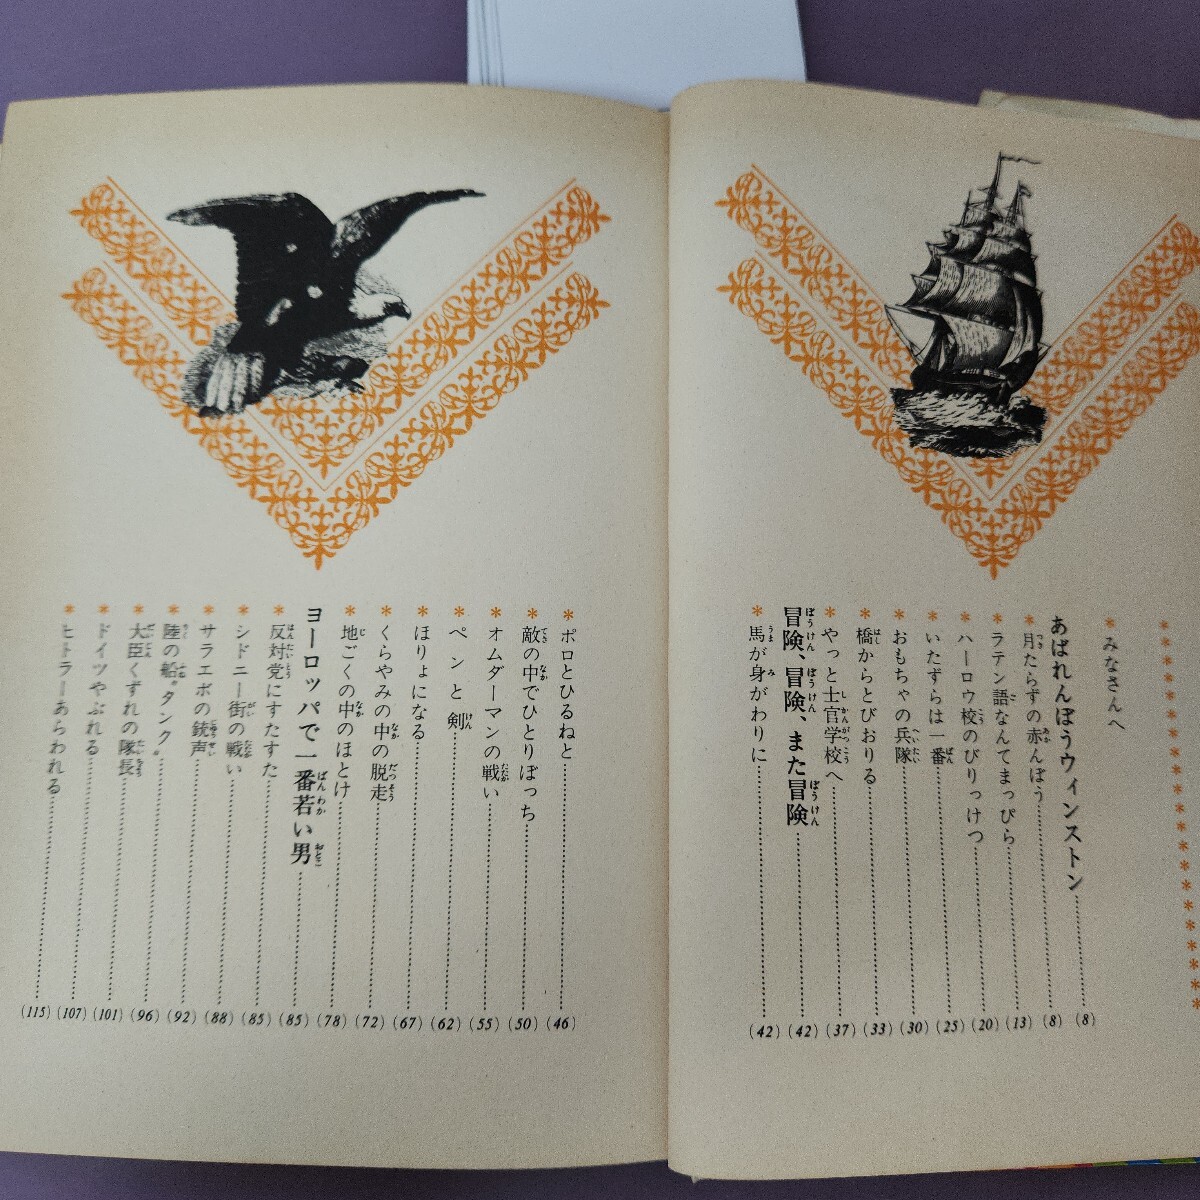 みなさんへ
あばれんぼうウィンストン……(8)
＊月たらずの赤んぼう……(8)
＊ラテン語なんてまっぴら……(13)
＊ハーロウ校のびりっけつ……(20)
＊いたずらは一番……(25)
＊おもちゃの兵隊……(30)
＊橋からとびおりる……(33)
＊やっと士官学校へ……(37)
冒険、冒険、また冒険……(42)
＊馬が身がわりに……(42)
＊ポロとひるねと……(46)
＊敵の中でひとりぼっち……(50)
＊オムダーマンの戦い……(55)
＊ペンと剣……(62)
＊ほりょになる……(67)
＊くらやみの中の脱走……(72)
＊地ごくの中のほとけ……(78)
ヨーロッパで一番若い男……(85)
＊反対党にすたすた……(85)
＊シドニー街の戦い……(88)
＊サラエボの銃声……(92)
＊陸の船“タンク”……(96)
＊大臣くずれの隊長……(101)
＊ドイツやぶれる……(107)
＊ヒトラーあらわれる……(115)